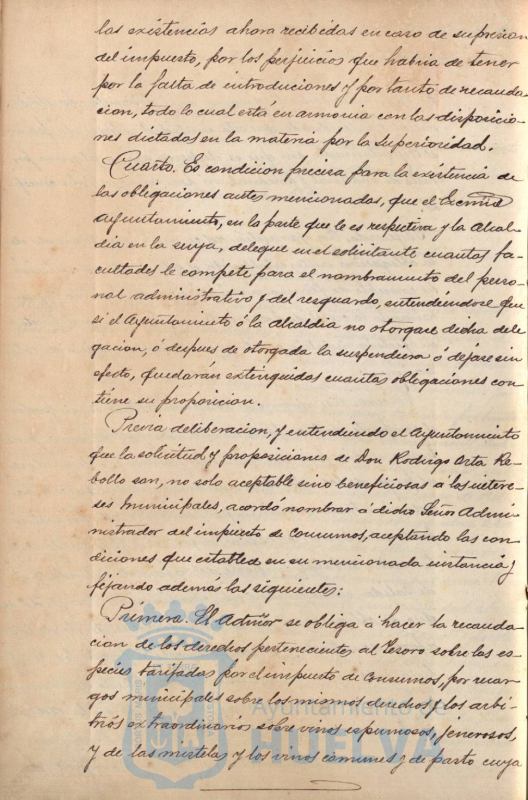 las existencias ahora recibidas en caso de supresion
del impuesto, por los perjuicios que habria de tener
por la falta de introduciones y por tanto de recauda-
cion, todo lo cual está en armonia con las disposicio-
nes dictadas en la materia por la Superioridad.
Cuarto. Es condicion precisa para la existencia de
las obligaciones antes mencionadas, que el Excmo
Ayuntamiento, en la parte que le es respectiva y la Alcal-
dia en la suya, delegue en el solicitante cuantas fa-
cultades le compete para el nombramiento del perso-
nal administrativo y del resguardo, entendiendose que
si el Ayuntamiento ó la Alcaldia no otorgare dicha dele-
gacion, ó despues de otorgada la suspendiera ó dejase sin
efecto, quedarán extinguidas cuantas obligaciones con-
tiene su proposicion.
Previa deliberacion, y entendiendo el Ayuntamiento
que la solicitud y proposiciones de Don Rodrigo Orta Re-
bollo son, no solo aceptable sino beneficiosas á los intere-
ses Municipales, acordó nombrar á dicho Señor Admi-
nistrador del impuesto de Consumos, aceptando las con-
diciones que establece en su mencionada instancia y
fijando además las siguientes:
Primera. El Admor se obliga á hacer la recauda-
cion de los derechos perteneciente al Tesoro sobre las es-
pecies tarifadas por el impuesto de Consumos, por recar-
gos municipales sobre los mismos derechos y los arbi-
trios extraordinarios sobre vinos espumosos, jenerosos,
y de las mistelas y los vinos comunes y de pasto cuya
Ayuntamiento de
HUELVA